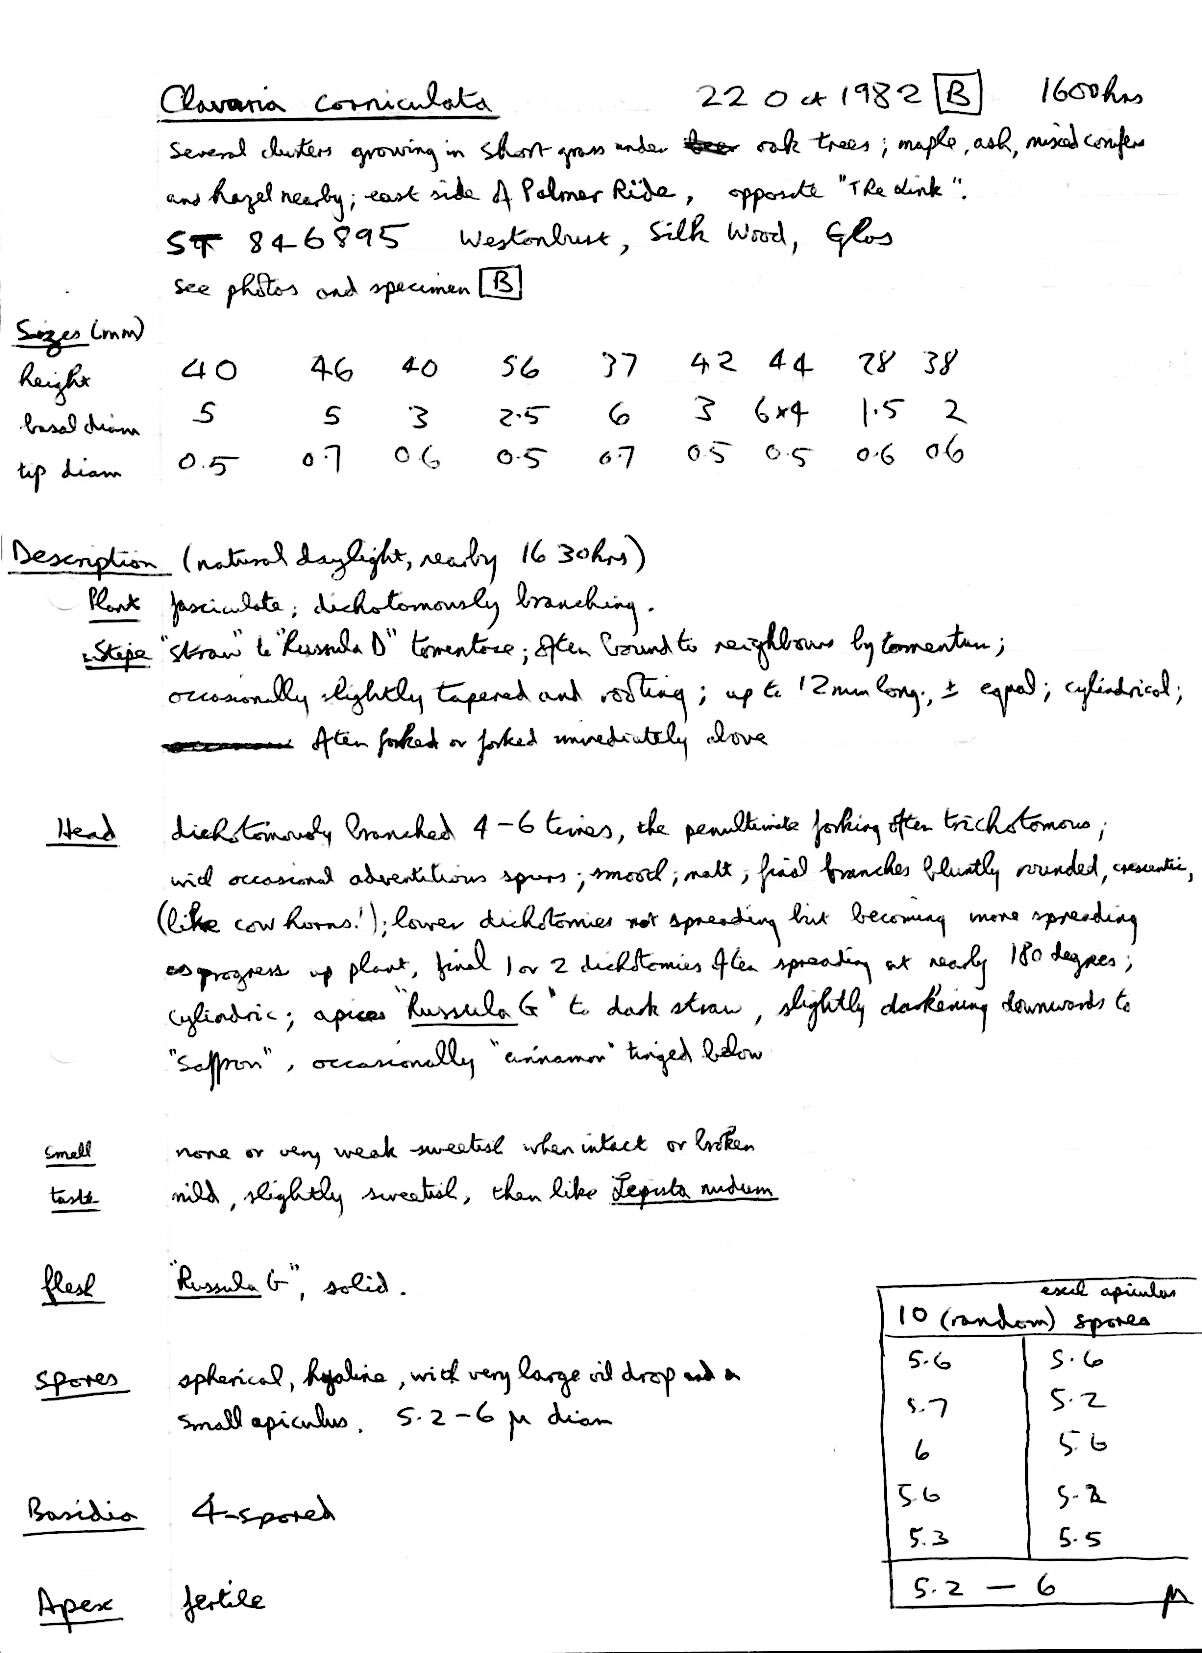 Clavaria corniculata 22 Oct 1982 B 1600hrs
Several clusters growing in short grass under oak trees; maple, ash, mixed conifers
and hazel nearby; east side of Palmer Ride, opposite "The Link".
ST 846895 Westonbirt, Silk Wood, Glos
see photos and specimen B
Sizes (mm)
height 40 46 40 56 37 42 44 28 38
basal diam 5 5 3 2.5 6 3 6x4 1.5 2
tip diam 0.5 0.7 0.6 0.5 0.7 0.5 0.5 0.6 0.6
Description (natural daylight, nearby 1630hrs)
Plant fasciculate; dichotomously branching.
Stipe "straw" to "Russula D" tomentose; often bound to neighbours by tomentum;
occasionally slightly tapered and rooting; up to 12mm long, ± equal; cylindrical;
often forked or forked immediately above
Head dichotomously branched 4-6 times, the penultimate forking often trichotomous;
with occasional adventitious spurs; smooth; matt; final branches bluntly rounded, crescentic,
(like cow horns!); lower dichotomies not spreading but becoming more spreading
as progress up plant, final 1 or 2 dichotomies often spreading at nearly 180 degrees;
cylindric; apices "Russula G" to dark straw, slightly darkening downwards to
"Saffron", occasionally "cinnamon" tinged below
smell none or very weak sweetish when intact or broken
taste mild, slightly sweetish, then like Lepista nudum
flesh "Russula G", solid.
excl apiculus
10 (random) spores
spores spherical, hyaline, with very large oil drop and a
small apiculus. 5.2-6 µ diam
5.6 5.6
5.7 5.2
6 5.6
5.6 5.2
5.3 5.5
5.2 - 6 µ
Basidia 4-spored
Apex fertile